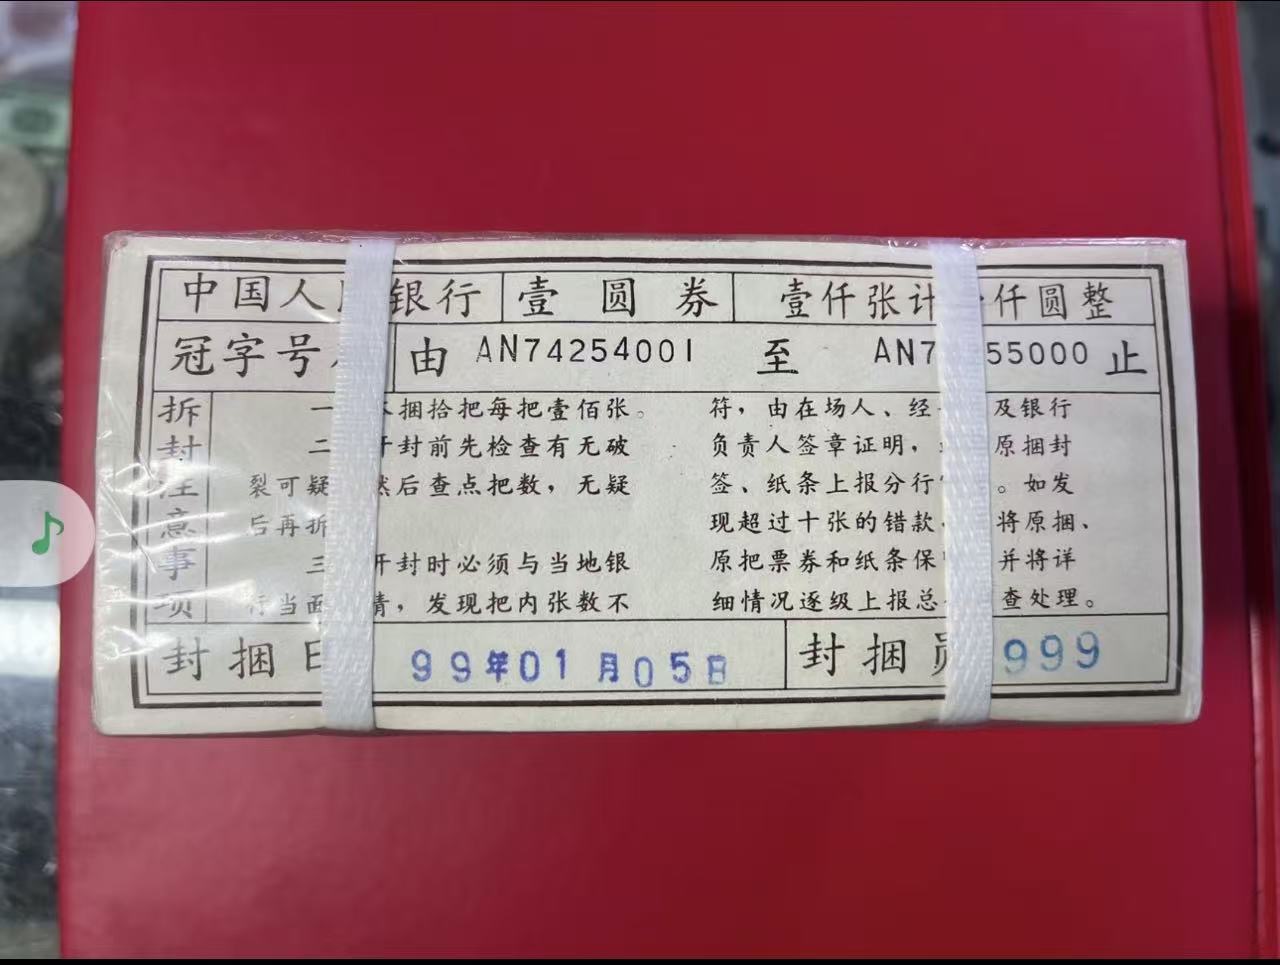 中国人 银行 壹圆券 壹仟张计 仟圆整
冠字号 由 AN74254001 至 AN7 55000 止
拆封注意事项
一 本捆拾把每把壹佰张。
二 开封前先检查有无破
裂可疑 然后查点把数，无疑
后再拆
三 开封时必须与当地银
行当面 清，发现把内张数不
符，由在场人、经 及银行
负责人签章证明， 原捆封
签、纸条上报分行 。如发
现超过十张的错款 将原捆、
原把票券和纸条保 并将详
细情况逐级上报总 查处理。
封捆日 99年01月05日 封捆员 999